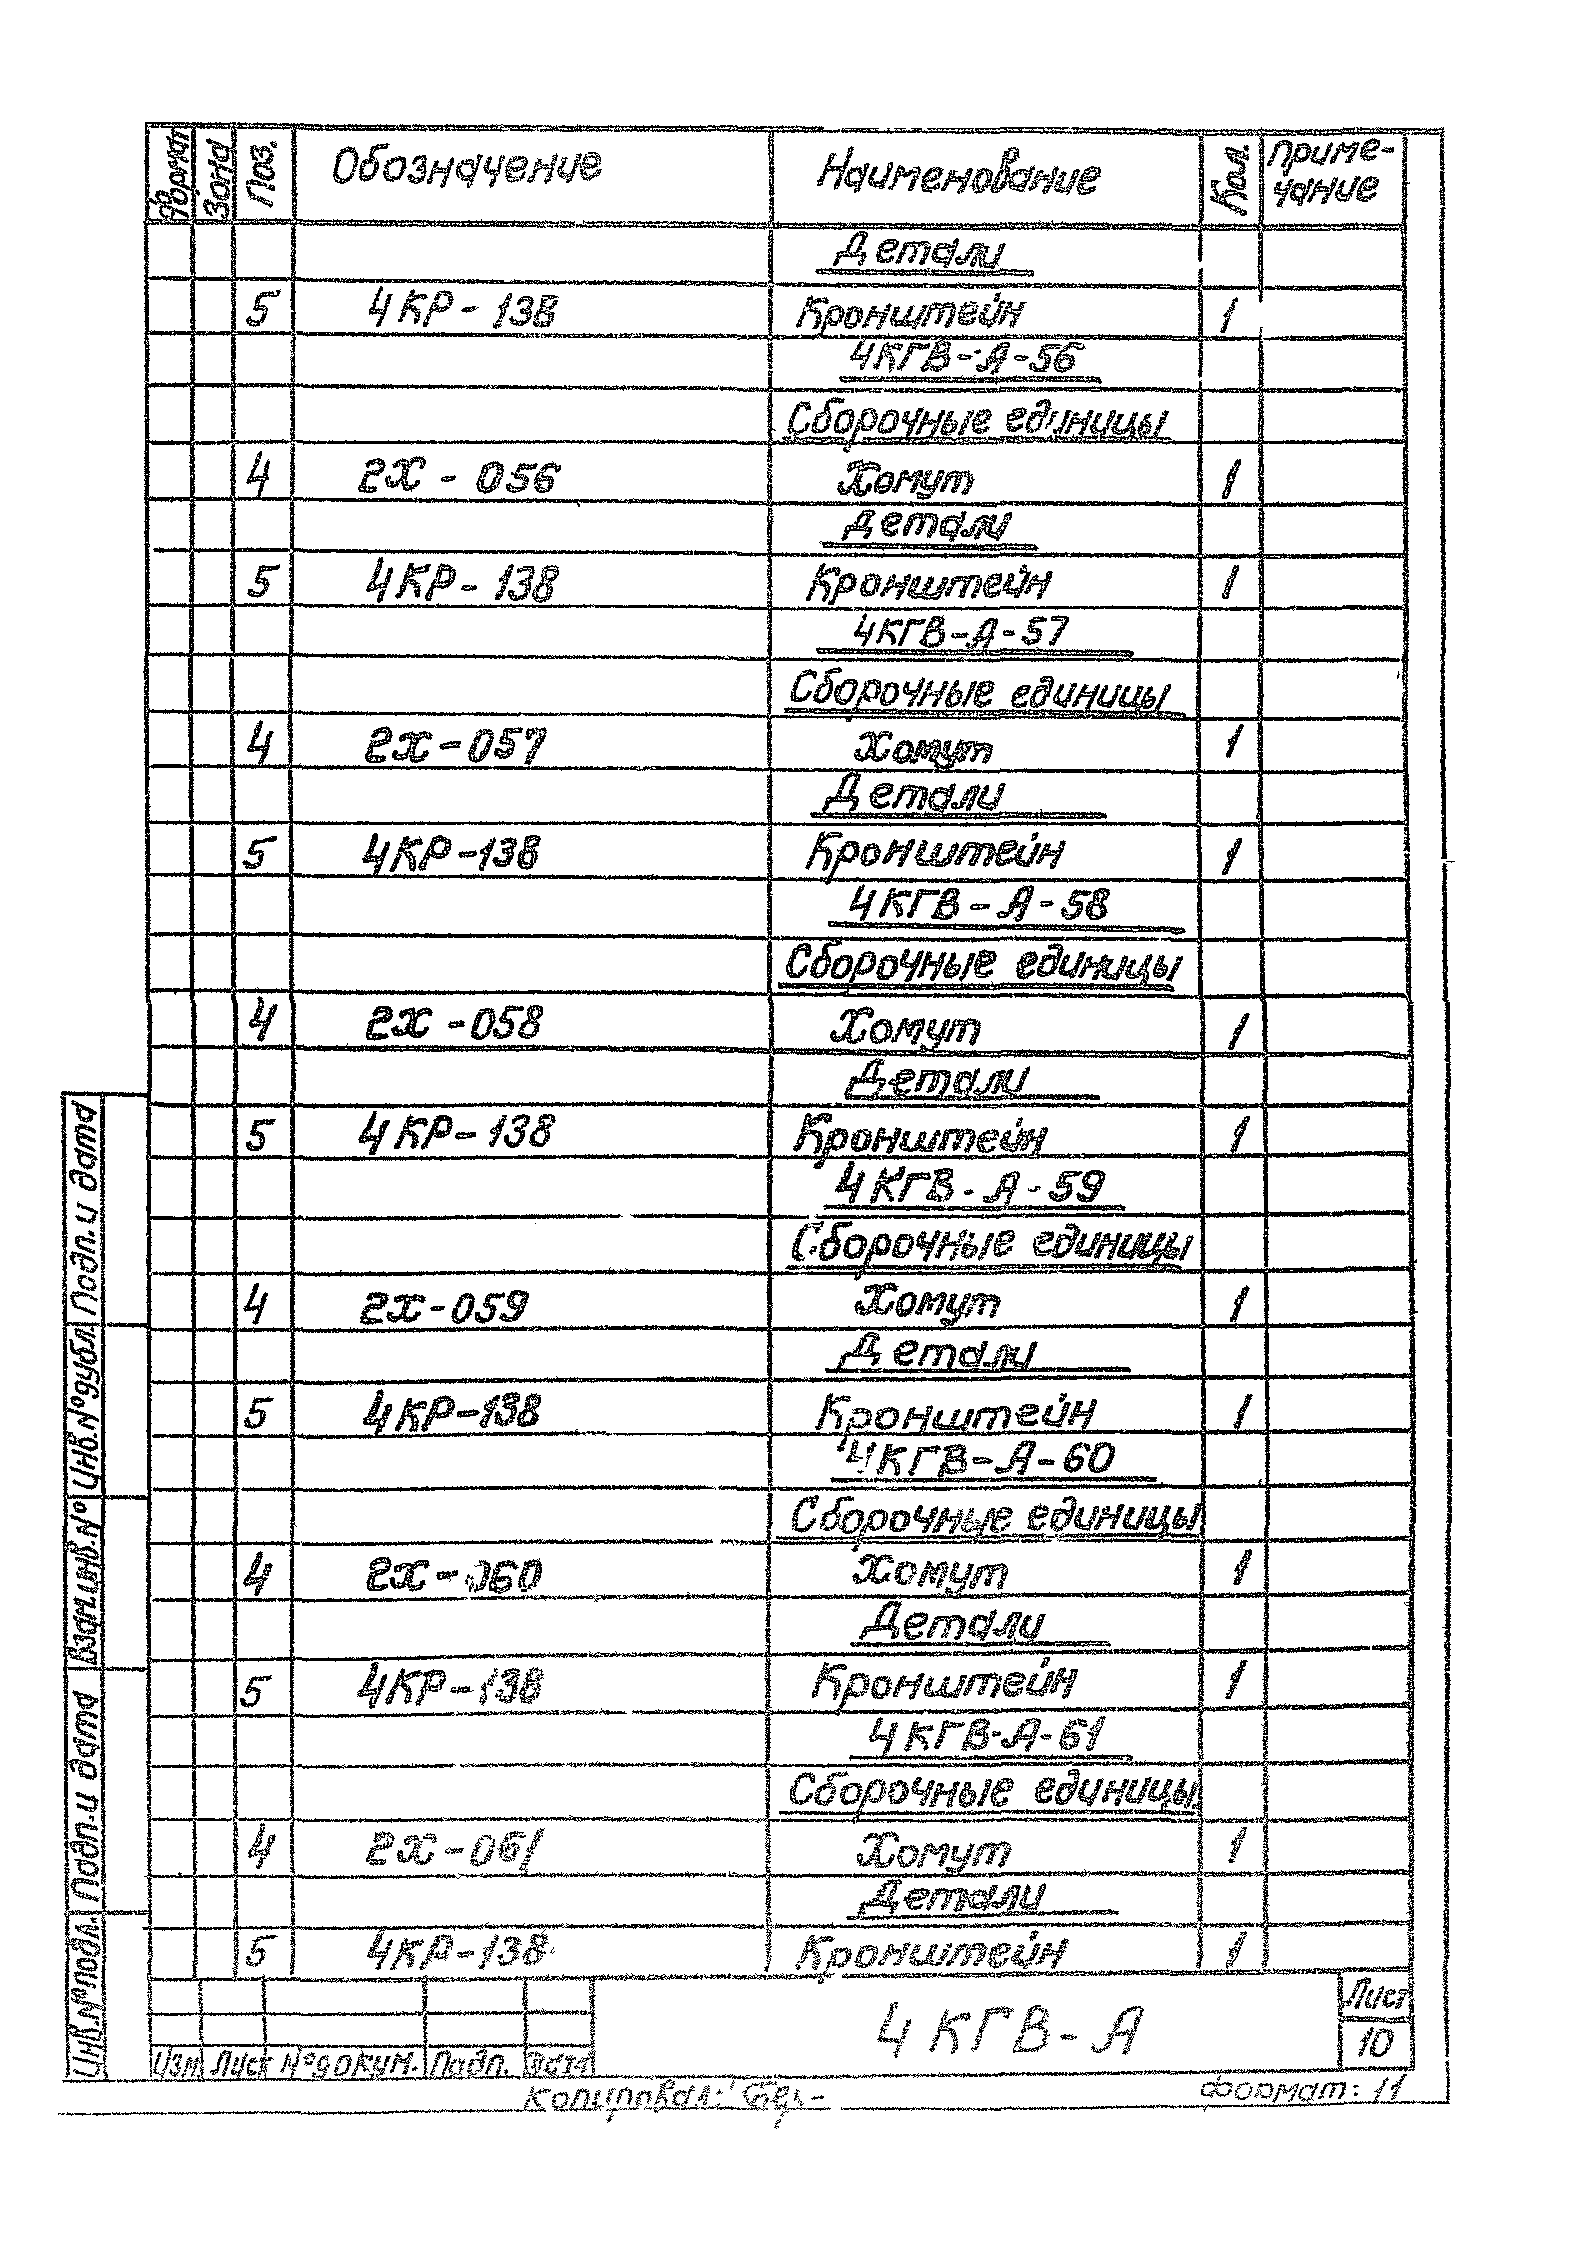 Формат Зона Поз. Обозначение Наименование Кол. Приме-
чание
Детали
5 4КР - 138 Кронштейн 1
4КГВ-А-56
Сборочные единицы
4 2Х - 056 Хомут 1
Детали
5 4КР - 138 Кронштейн 1
4КГВ-А-57
Сборочные единицы
4 2Х-057 Хомут 1
Детали
5 4КР-138 Кронштейн 1
4КГВ-А-58
Сборочные единицы
4 2Х-058 Хомут 1
Детали
5 4КР-138 Кронштейн 1
4КГВ-А-59
Сборочные единицы
4 2Х-059 Хомут 1
Детали
5 4КР-138 Кронштейн 1
4КГВ-А-60
Сборочные единицы
4 2Х-060 Хомут 1
Детали
5 4КР-138 Кронштейн 1
4КГВ-А-61
Сборочные единицы
4 2Х-061 Хомут 1
Детали
5 4КР-138 Кронштейн 1
Инв.№подл. Подп.и дата Взам.инв.№ Инв.№дубл. Подп.и дата
4КГВ-А
Лист
10
Изм Лист №докум. Подп. Дата
Копировал:
Формат: 11